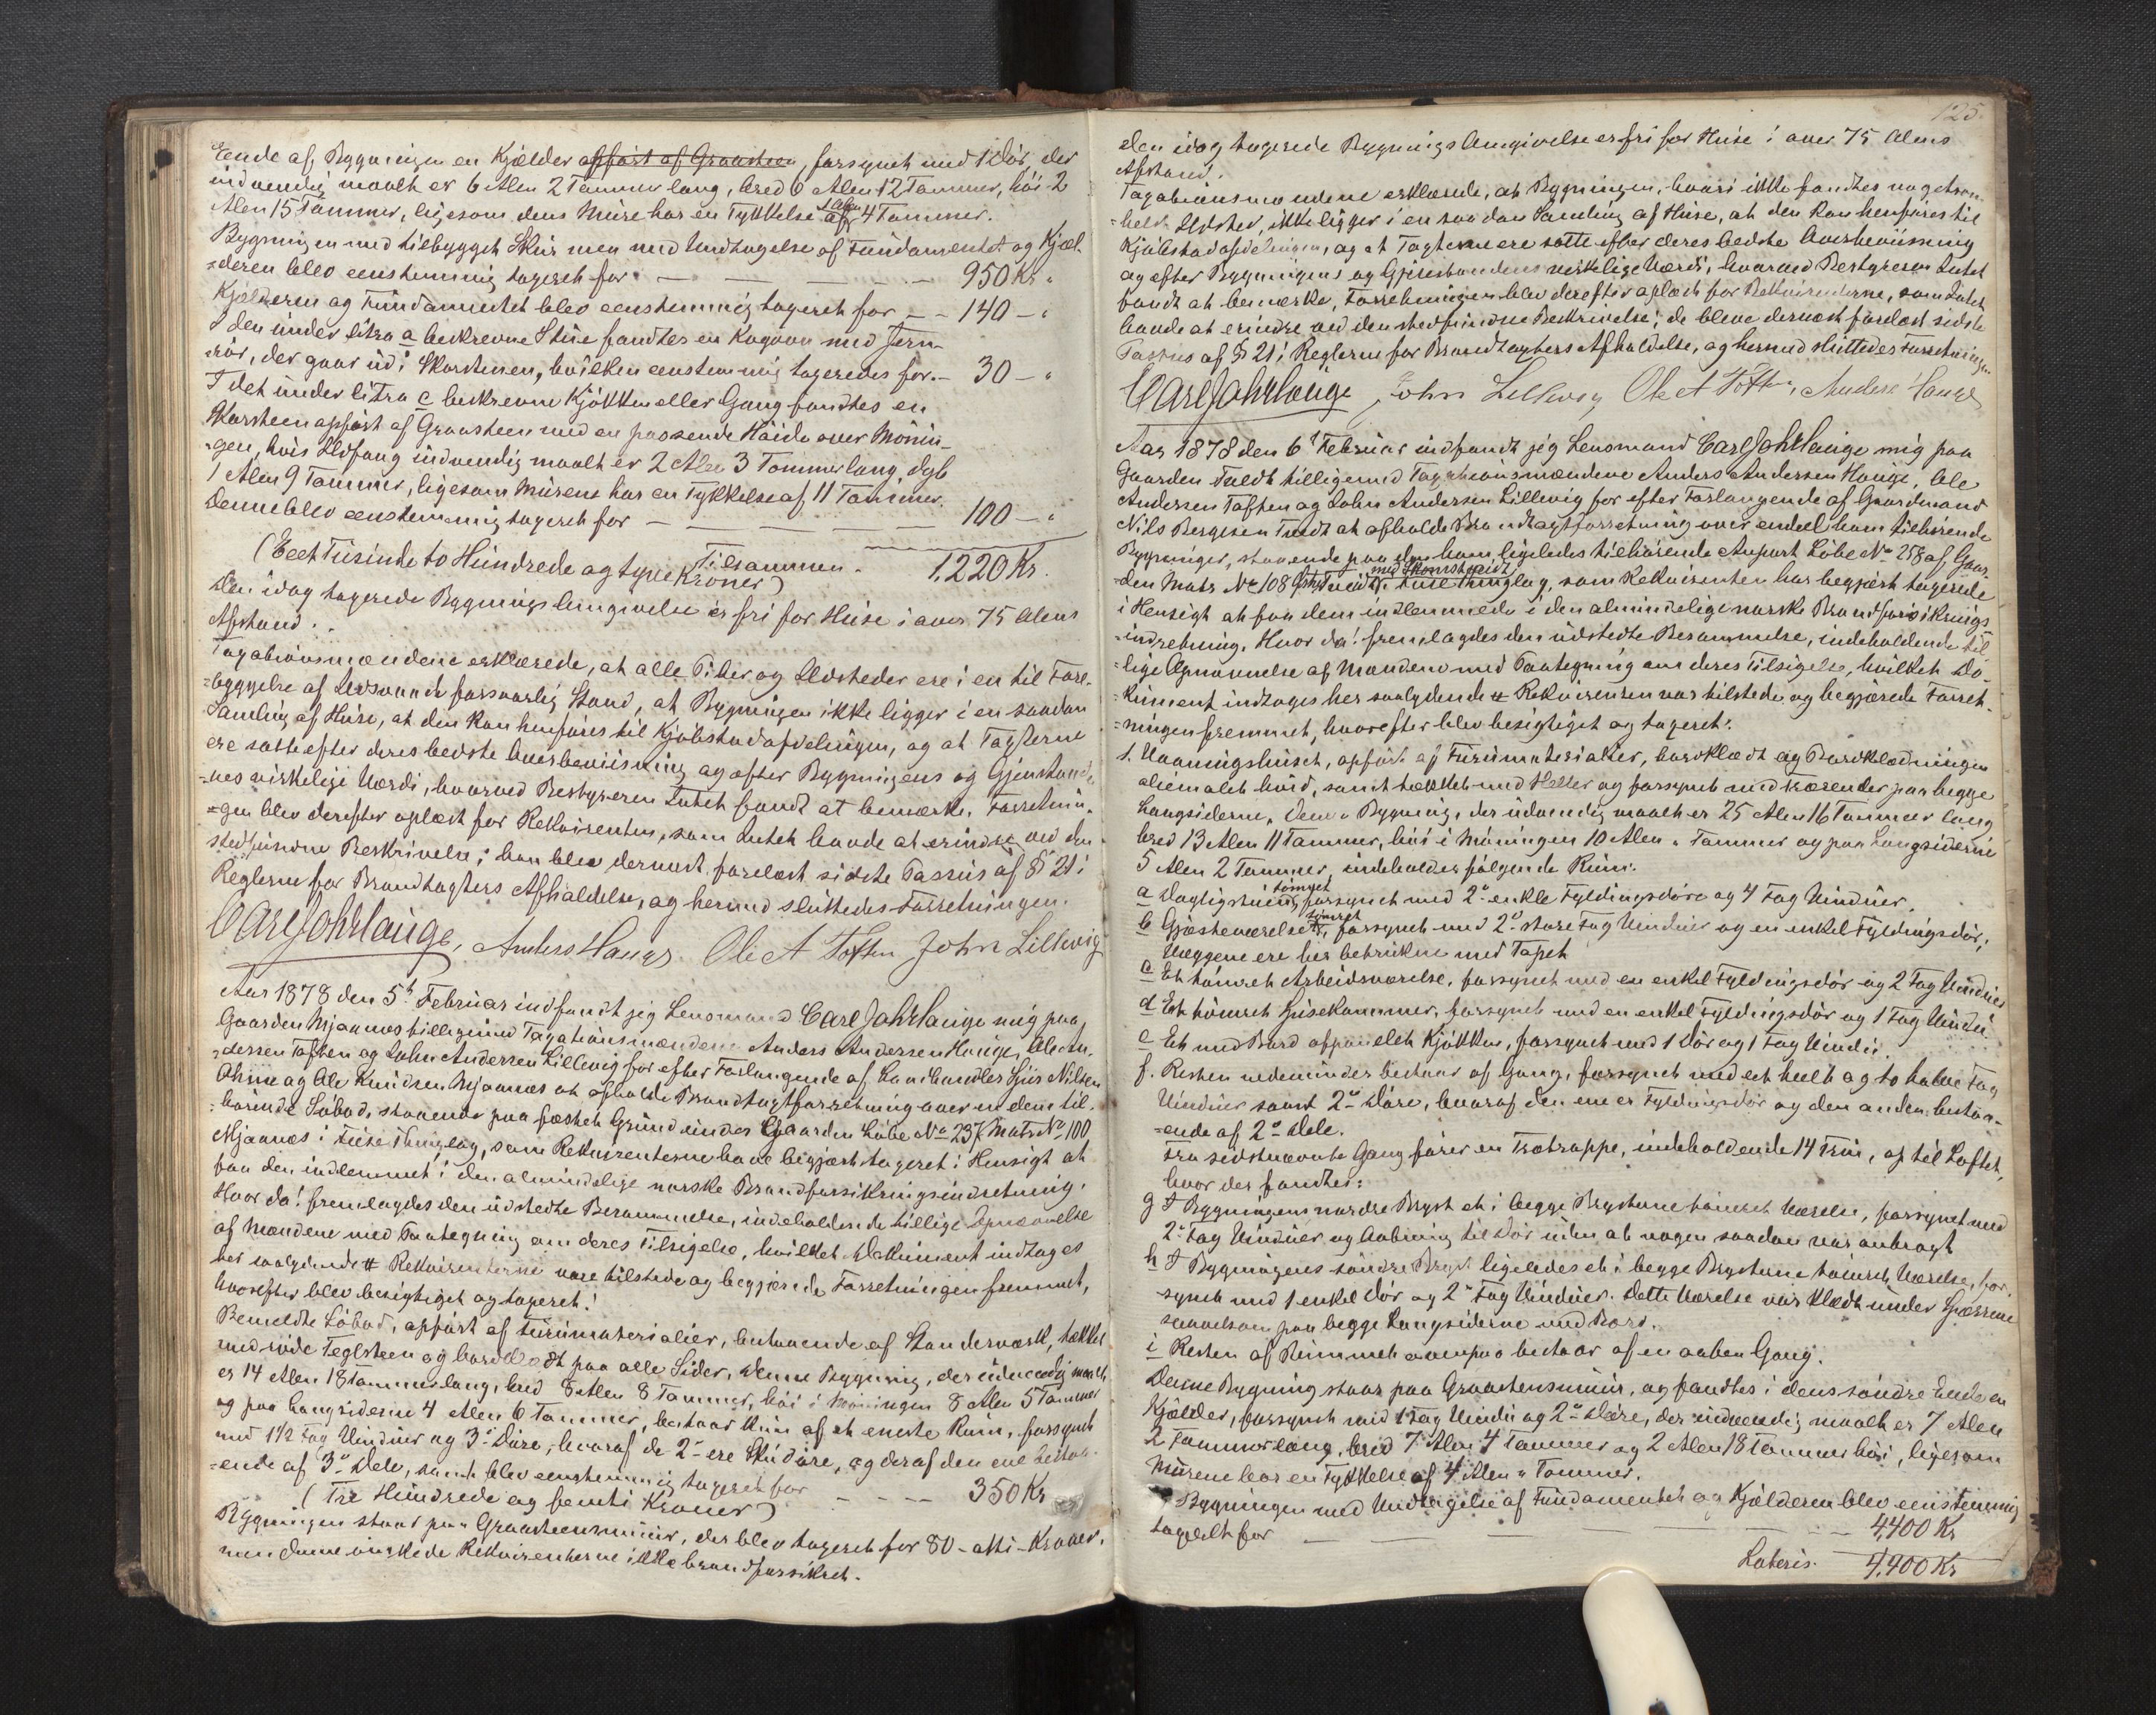 Ende af Bygningen en Kjælder opført af Graasteen, forsynet med 1 Dør, der
indvendig maalt er 6 Alen 2 Tommer lang, bred 6 Alen 12 Tommer, høi 2
Alen 15 Tommer, ligesom dens Mure har en Tykkelse af 1 Alen 4 Tommer.
Bygningen med tilbygget Skur men med Undtagelse af Fundamentet og Kjæl-
=deren blev eenstemmig taxeret for — — — 950 Kr "
Kjælderen og Fundamentet blev eenstemmig taxeret for — — 140 — "
I den under litra a beskrevne Stue fandtes en Kogovn med Jern-
=rør, der gaar ud i Skorstenen, hvilken eenstemmig taxeredes for — 30 — "
I det under litra c beskrevne Kjøkken eller Gang fandtes en
Skorsteen opført af Graasteen med en passende Høide over Mønin-
=gen, hvis Ildfang indvendig maalt er 2 Alen 3 Tommer lang, dyb
1 Alen 9 Tommer, ligesom Murene har en Tykkelse af 11 Tommer.
Denne blev eenstemmig taxeret for — — — 100 — "
Tilsammen. 1,220 Kr.
(Eet Tusinde to Hundrede og tyve Kroner)
Den idag taxerede Bygnings Omgivelse er fri for Huse i over 75 Alens
Afstand.
Taxationsmændene erklærede, at alle Piber og Ildsteder ere i en til Fore-
=byggelse af Ildsvaade forsvarlig Stand, at Bygningen ikke ligger i en saadan
Samling af Huse, at den kan henføres til Kjøbstadafdelingen, og at Taxterne
ere satte efter deres bedste Overbeviisning og efter Bygningens og Gjenstande-
=nes virkelige Værdi, hvorved Bestyreren Intet fandt at bemærke. Forretnin-
=gen blev derefter oplæst for Rekvirenten, som Intet havde at erindre ved den
stedfundne Beskrivelse; han blev dernæst forelæst sidste Passus af § 21 i
Reglerne for Brandtaxters Afholdelse, og hermed sluttedes Forretningen.
Carl Joh Hauge, Anders Hauge. Ole A Toften John Lillevig
Aar 1878 den 5t Februar indfandt jeg Lensmand Carl Joh Hauge mig paa
Gaarden Mjaanes tilligemed Taxationsmændene Anders Andersen Hauge, Ole An-
=dersen Toften og John Andersen Lillevig for efter Forlangende af Landhandler Sjur Nilsen
og Ole Knudsen Mjaanes at afholde Brandtaxtforretning over en dem til-
=hørende Søbod, staaende paa fæstet Grund under Gaarden Løbe No 237 Matr No 100
Mjaanes i Fuse Thinglag, som Rekvirenterne have begjært taxeret i Hensigt at
faa den indlemmet i den almindelige norske Brandforsikringsindretning.
Hvor da! fremlagdes den udstedte Berammelse, indeholdende tillige Opnævnelse
af Mændene med Paategning om deres Tilsigelse, hvilket Dokument indtages
her saalydende # Rekvirenterne vare tilstede og begjærede Forretningen fremmet,
hvorefter blev besigtiget og taxeret:
Bemeldte Søbod, opført af Furumaterialier, bestaaende af Standerværk, tækket
med røde Teglsteen og bordklædt paa alle Sider, denne Bygning, der udvendig maalt
er 14 Alen 18 Tommer lang, bred 8 Alen 8 Tommer, høi i Møningen 8 Alen 5 Tommer
og paa Langsiderne 4 Alen 6 Tommer, bestaar kun af et eneste Rum, forsynet
med 1 1/2 Fag Vinduer og 3de Døre, hvoraf de 2de ere Skudøre, og deraf den ene bestaa-
=ende af 3de Dele, samt blev eenstemmig taxeret for — — — 350 Kr
(Tre Hundrede og femti Kroner)
Bygningen staar paa Graasteensmuur, der blev taxeret for 80 - otti - Kroner,
men denne ønskede Rekvirenterne ikke brandforsikret.
125.
Den idag taxerede Bygnings Omgivelse er fri for Huse i over 75 Alens
Afstand.
Taxationsmændene erklærede, at Bygningen, hvori ikke fandtes nogetsom-
=helst Ildsted, ikke ligger i en saadan Samling af Huse, at den kan henføres til
Kjøbstadafdelingen, og at Taxterne ere satte efter deres bedste Overbeviisning
og efter Bygningens og Gjenstandens virkelige Værdi, hvorved Bestyreren Intet
fandt at bemærke. Forretningen blev derefter oplæst for Rekvirenterne, som Intet
havde at erindre ved den stedfundne Beskrivelse; de bleve dernæst forelæst sidste
Passus af § 21 i Reglerne for Brandtaxters Afholdelse, og hermed sluttedes Forretningen
Carl Joh Hauge John Lillevig Ole A Toften, Anders Hauge
Aar 1878 den 6t Februar indfandt jeg Lensmand Carl Joh Hauge mig paa
Gaarden Tvedt tilligemed Taxationsmændene Anders Andersen Hauge, Ole
Andersen Toften og John Andersen Lillevig for efter Forlangende af Gaardmand
Nils Bergesen Tvedt at afholde Brandtaxtforretning over endeel ham tilhørende
Bygninger, staaende paa den ham ligeledes tilhørende Anpart Løbe No 258 af Gaar-
=den Matr No 108 Tvedt i Fuse Thinglag, som Rekvirenten har begjært taxerede
i Hensigt at faa dem indlemmede i den almindelige norske Brandforsikrings-
=indretning. Hvor da! fremlagdes den udstedte Berammelse, indeholdende til-
=lige Opnævnelse af Mændene med Paategning om deres Tilsigelse, hvilket Do-
=kument indtages her saalydende # Rekvirenten var tilstede og begjærede Forret-
=ningen fremmet, hvorefter blev besigtiget og taxeret:
1. Vaaningshuset, opført af Furumaterialier, bordklædt og Bordklædningen
oliemalet hvid, samt tækket med Heller og forsynet med Træender paa begge
Langsiderne. Denne Bygning, der udvendig maalt er 25 Alen 16 Tommer lang
bred 13 Alen 11 Tommer, høi i Møningen 10 Alen " Tommer og paa Langsiderne
5 Alen 2 Tommer, indeholder følgende Rum:
a Dagligstue, tømret forsynet med 2de enkle Fyldingsdøre og 4 Fag Vinduer.
b Gjæsteværelse, tømret, forsynet med 2de store Fag Vinduer og en enkel Fyldingsdør;
Væggene ere her betrukne med Tapet
c Et tømret Arbeidsværelse, forsynet med en enkel Fyldingsdør og 2 Fag Vinduer
d Et tømret Spisekammer, forsynet med en enkel Fyldingsdør og 1 Fag Vindu.
e Et med Bord afpanelet Kjøkken, forsynet med 1 Dør og 1 Fag Vindu.
f. Resten nedenunder bestaar af Gang, forsynet med et heelt og to halve Fag
Vinduer samt 2de Døre, hvoraf den ene er Fyldingsdør og den anden bestaa-
=ende af 2de Dele.
Fra sidstnævnte Gang fører en Trætrappe, indeholdende 14 Trin, op til Loftet,
hvor der fandtes:
g I Bygningens nordre Bryst et i begge Brystene tømret Værelse, forsynet med
2de Fag Vinduer og Aabning til Dør uden at nogen saadan var anbragt
h I Bygningens søndre Bryst ligeledes et i begge Brystene tømret Værelse, for-
synet med 1 enkel Dør og 2de Fag Vinduer. Dette Værelse var klædt under Sperrene
saavelsom paa begge Langsiderne med Bord.
i Resten af Rummet ovenpaa bestaar af en aaben Gang.
Denne Bygning staar paa Graasteensmuur, og fandtes i dens søndre Ende en
Kjælder, forsynet med 1 Fag Vindu og 2de Døre, der indvendig maalt er 7 Alen
2 Tommer lang, bred 7 Alen 4 Tommer og 2 Alen 18 Tommer høi, ligesom
Murene har en Tykkelse af 4 Alen " Tommer.
Bygningen med Undtagelse af Fundamentet og Kjælderen blev eenstemmig
taxeret for — — — 4400 Kr
Lateris. 4,400 Kr